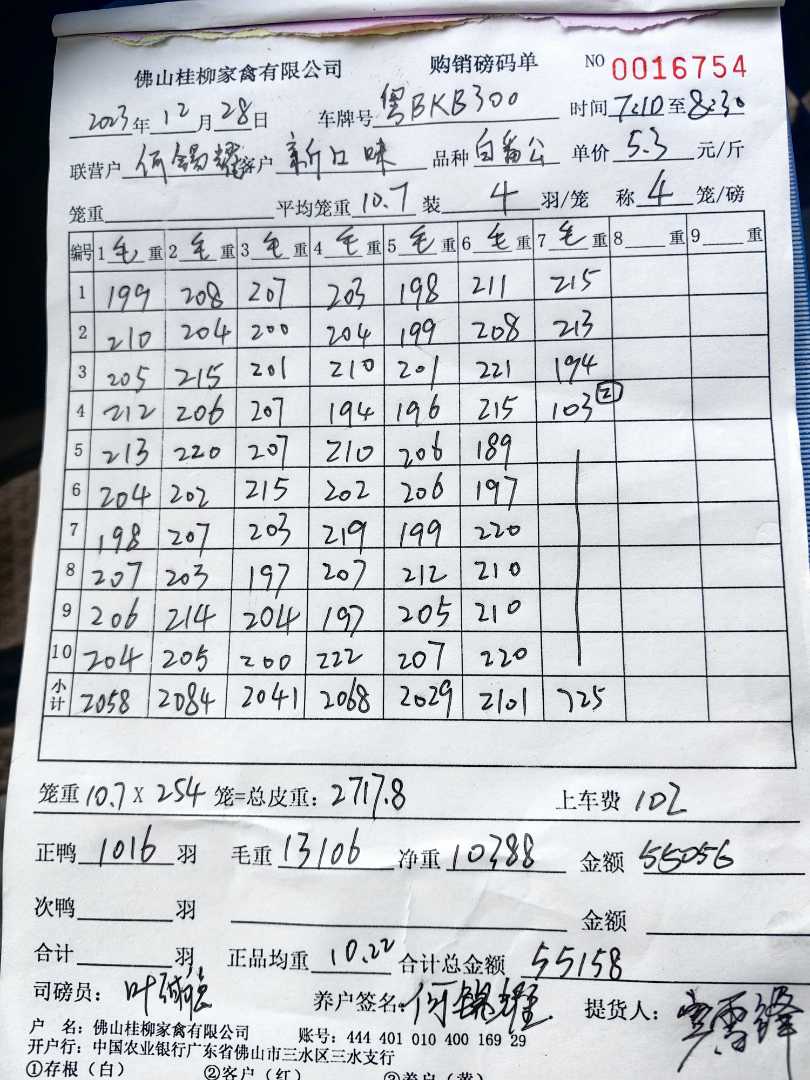 佛山桂柳家禽有限公司 购销磅码单 NO 0016754
2023年12月28日 车牌号 粤BKB300 时间 7:10至8:30
联营户 何锡耀 客户 新口味 品种 白番公 单价 5.3 元/斤
笼重 平均笼重 10.7 装 4 羽/笼 称 4 笼/磅
编号 1毛重 2毛重 3毛重 4毛重 5毛重 6毛重 7毛重 8 重 9 重
1 199 208 207 203 198 211 215
2 210 204 200 204 199 208 213
3 205 215 201 210 201 221 194
4 212 206 207 194 196 215 103 2
5 213 220 207 210 206 189
6 204 202 215 202 206 197
7 198 207 203 219 199 220
8 207 203 197 207 212 210
9 206 214 204 197 205 210
10 204 205 200 222 207 220
小计 2058 2084 2041 2068 2029 2101 725
笼重 10.7 X 254 笼=总皮重: 2717.8 上车费 102
正鸭 1016 羽 毛重 13106 净重 10388 金额 55056
次鸭 羽 金额
合计 羽 正品均重 10.22 合计总金额 55158
司磅员: 叶 养户签名: 何锡耀 提货人:
户 名: 佛山桂柳家禽有限公司 账号: 444 401 010 400 169 29
开户行: 中国农业银行广东省佛山市三水区三水支行
①存根（白） ②客户（红） ③养户（黄）